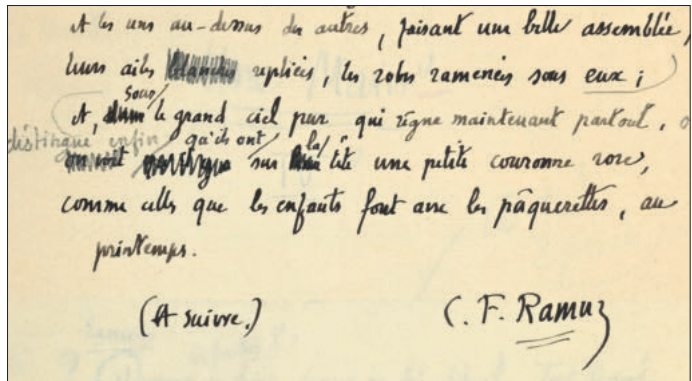 et les uns au-dessus des autres, faisant une belle assemblée,
leurs ailes blanches repliées, les robes ramenées sous eux ;
sous
et, dans le grand ciel pur qui règne maintenant partout, o
distingue enfin qu'ils ont la
on voit sur leur tête une petite couronne rose,
comme celles que les enfants font avec les pâquerettes, au
printemps.
(A suivre.) C. F. Ramuz